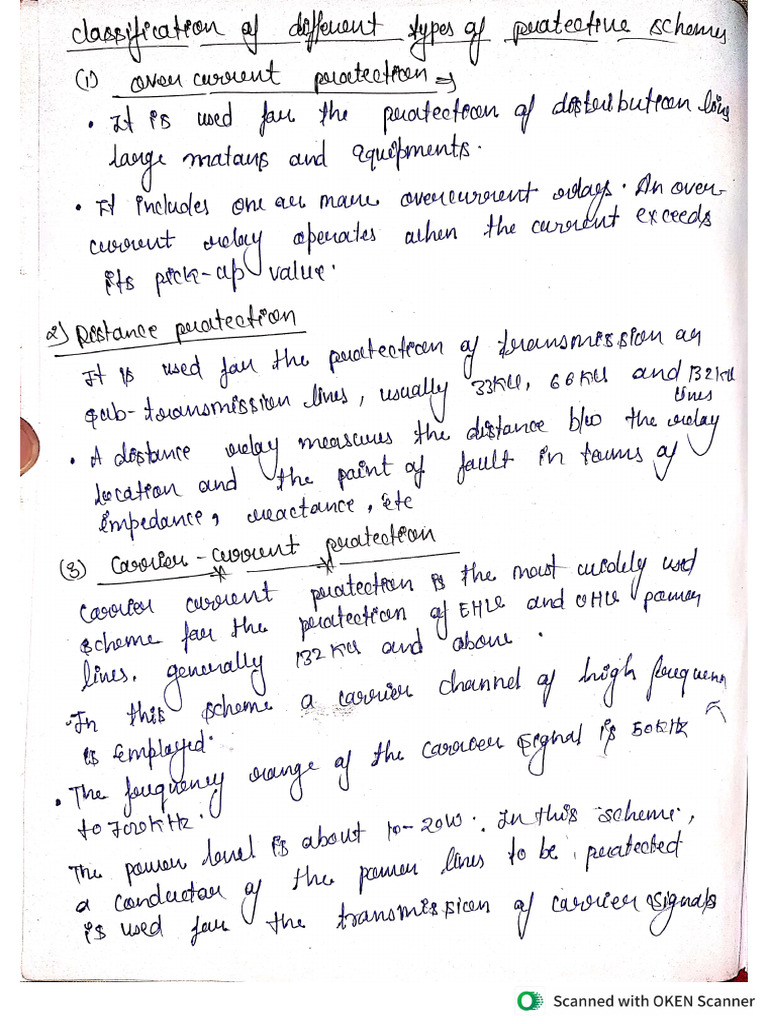 classification of different types of protective schemes
(1) over current protection →
• It is used for the protection of distribution lines
large motors and equipments.
• It includes one or more overcurrent relays. An over-
current relay operates when the current exceeds
its pick-up value.
2) Distance protection
It is used for the protection of transmission or
sub-transmission lines, usually 33KV, 66KV and 132KV
lines
• A distance relay measures the distance b/w the relay
location and the point of fault in terms of
impedance, reactance, etc
(3) Carrier-current protection
Carrier current protection is the most widely used
scheme for the protection of EHV and UHV power
lines, generally 132KV and above.
• In this scheme a carrier channel of high frequen
is employed.
• The frequency range of the carrier signal is 50KHz
to 700KHz.
The power level is about 10-20W. In this scheme,
a conductor of the power lines to be protected
is used for the transmission of carrier signals
Scanned with OKEN Scanner